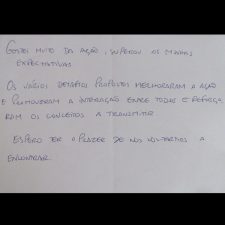 GOSTEI MUITO DA AÇÃO, SUPEROU AS MINHAS
EXPECTATIVAS.
OS VÁRIOS DESAFIOS PROPOSTOS MELHORARAM A AÇÃO
E PROMOVERAM A INTERAÇÃO ENTRE TODOS E REFORÇA
RAM OS CONCEITOS A TRANSMITIR.
ESPERO TER O PRAZER DE NOS VOLTARMOS A
ENCONTRAR.